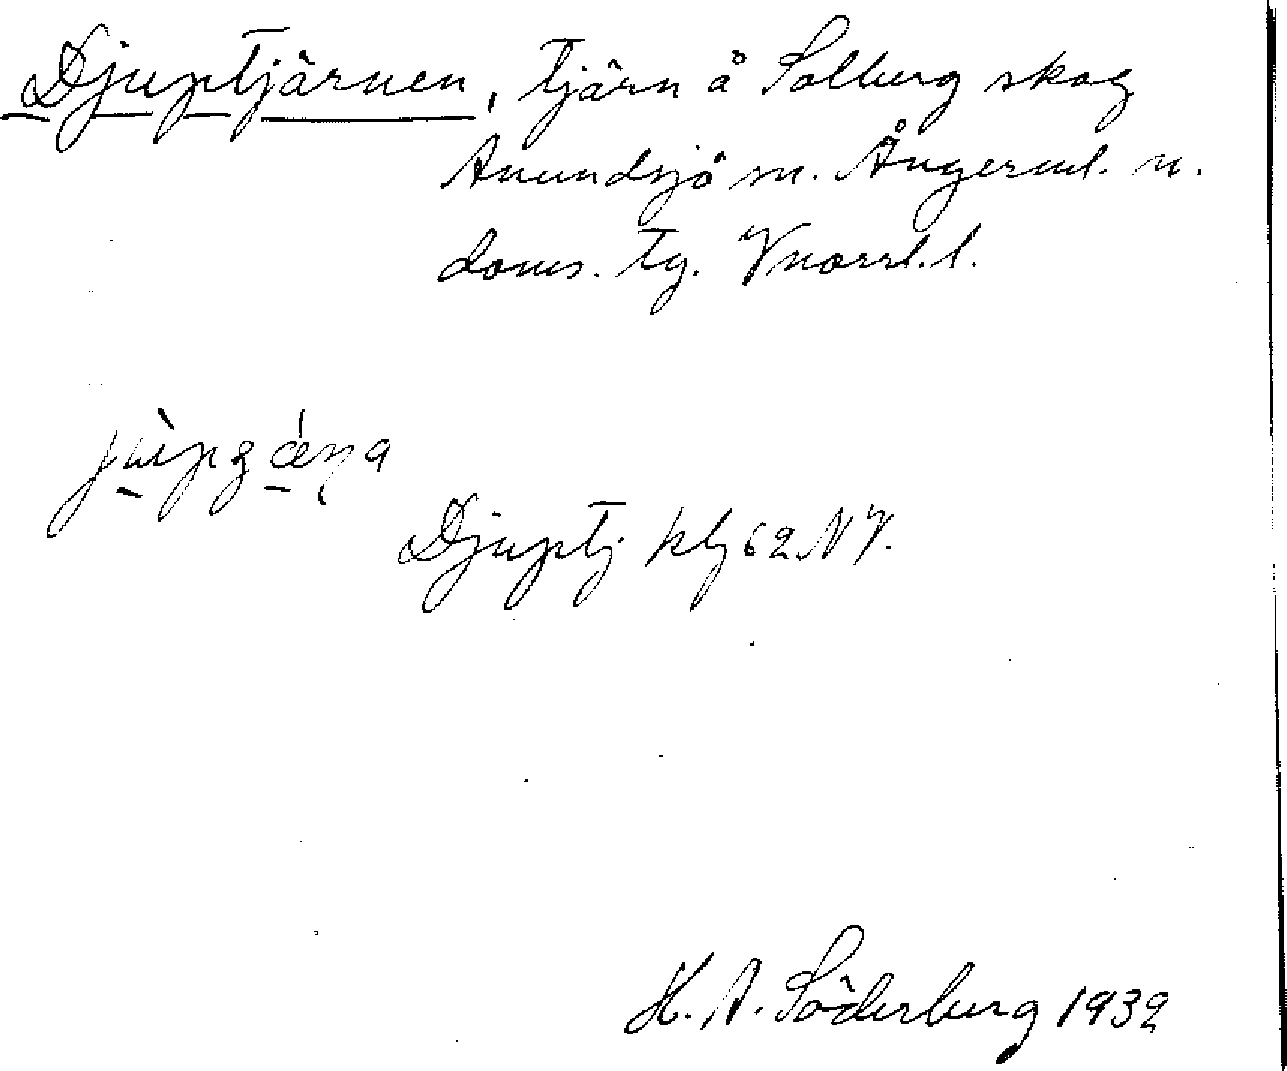 Djuptjärnen, tjärn å Solberg skog
Anundsjö sn. Ångerml. n.
doms. tg. Vnorrl. l.
Djuptj. kbl 62 NV.
H. A. Söderberg 1932